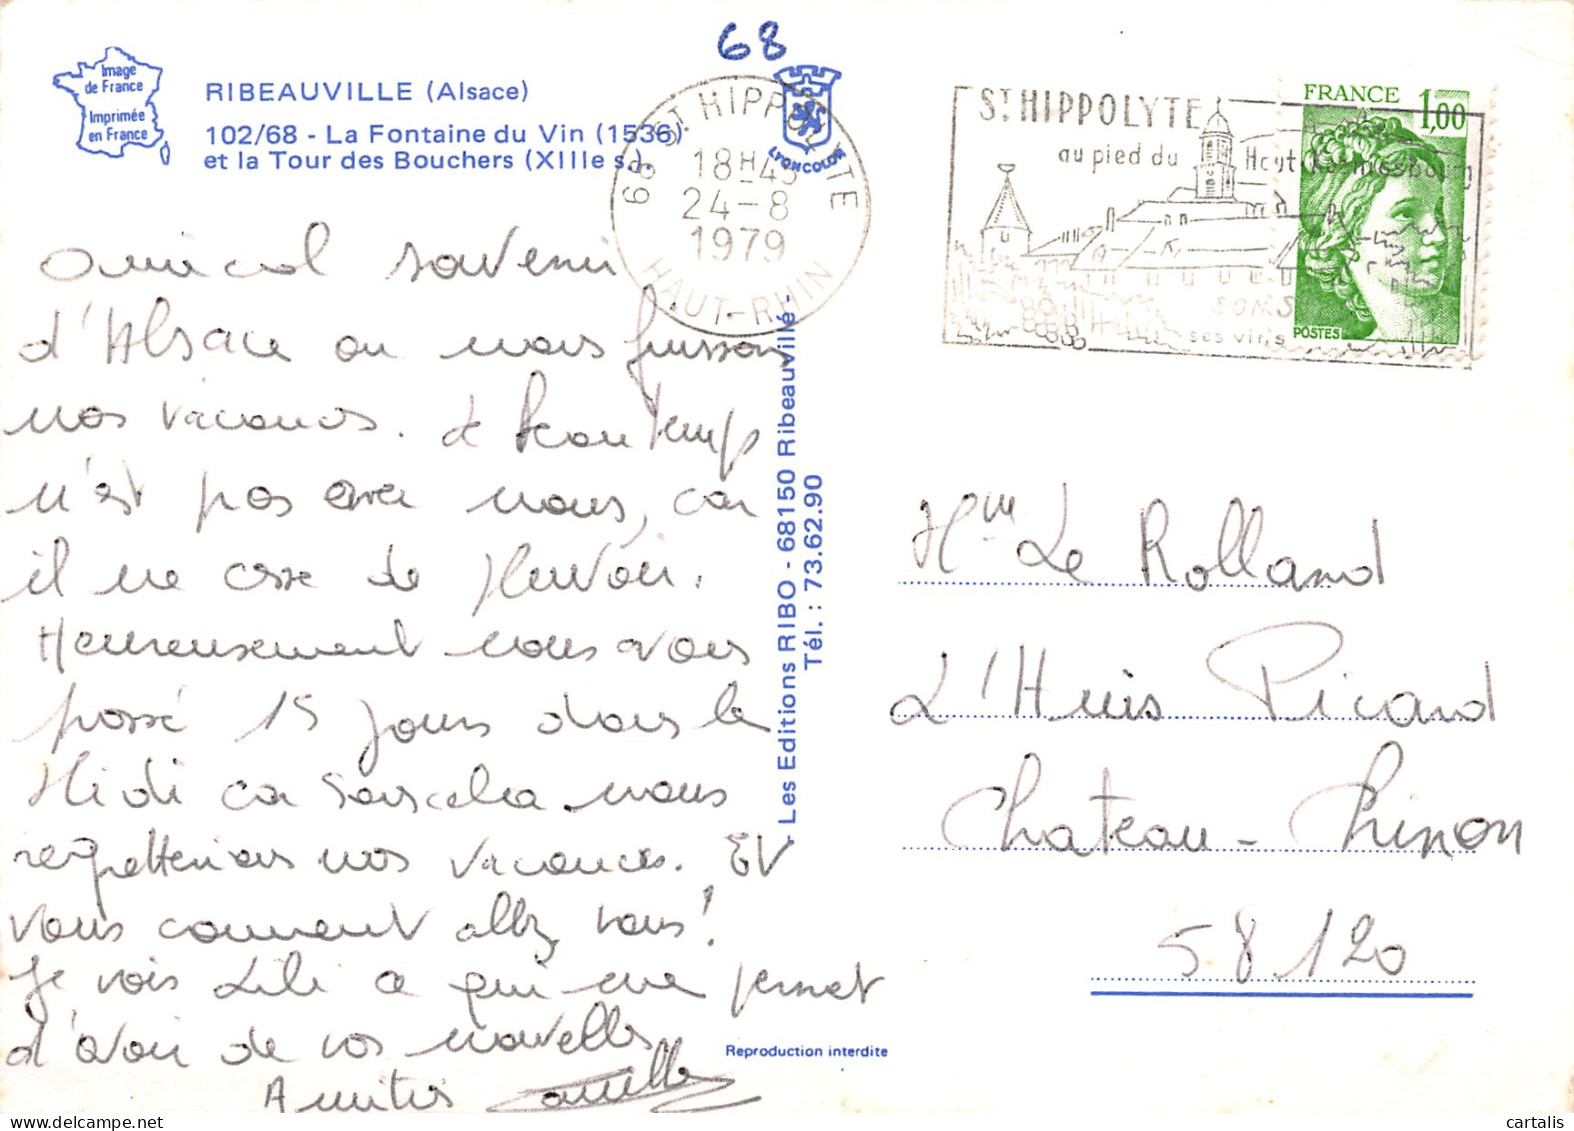 68
Image
de France
Imprimée
en France
RIBEAUVILLE (Alsace)
102/68 - La Fontaine du Vin (1536)
et la Tour des Bouchers (XIIIe s.)
LYONCOLOR
68 ST HIPPOLYTE
18H45
24-8
1979
HAUT-RHIN
ST HIPPOLYTE
au pied du Haut Koenigsbourg
ses vins
FRANCE 1,00
POSTES
Amical souvenir
d'Alsace ou nous finissons
nos vacances. Le beau temps
n'est pas avec nous, car
il ne cesse de pleuvoir.
Heureusement nous avons
passé 15 jours dans le
Midi car sans cela nous
regretterions nos vacances. Et
vous comment allez vous!
Je vois Lili ce qui me permet
d'avoir de vos nouvelles.
Amitiés
- Les Editions RIBO - 68150 Ribeauvillé -
Tél. : 73.62.90
Reproduction interdite
Mme Le Rolland
L'Huis Picard
Chateau-Chinon
58120
www.delcampe.net
cartalis